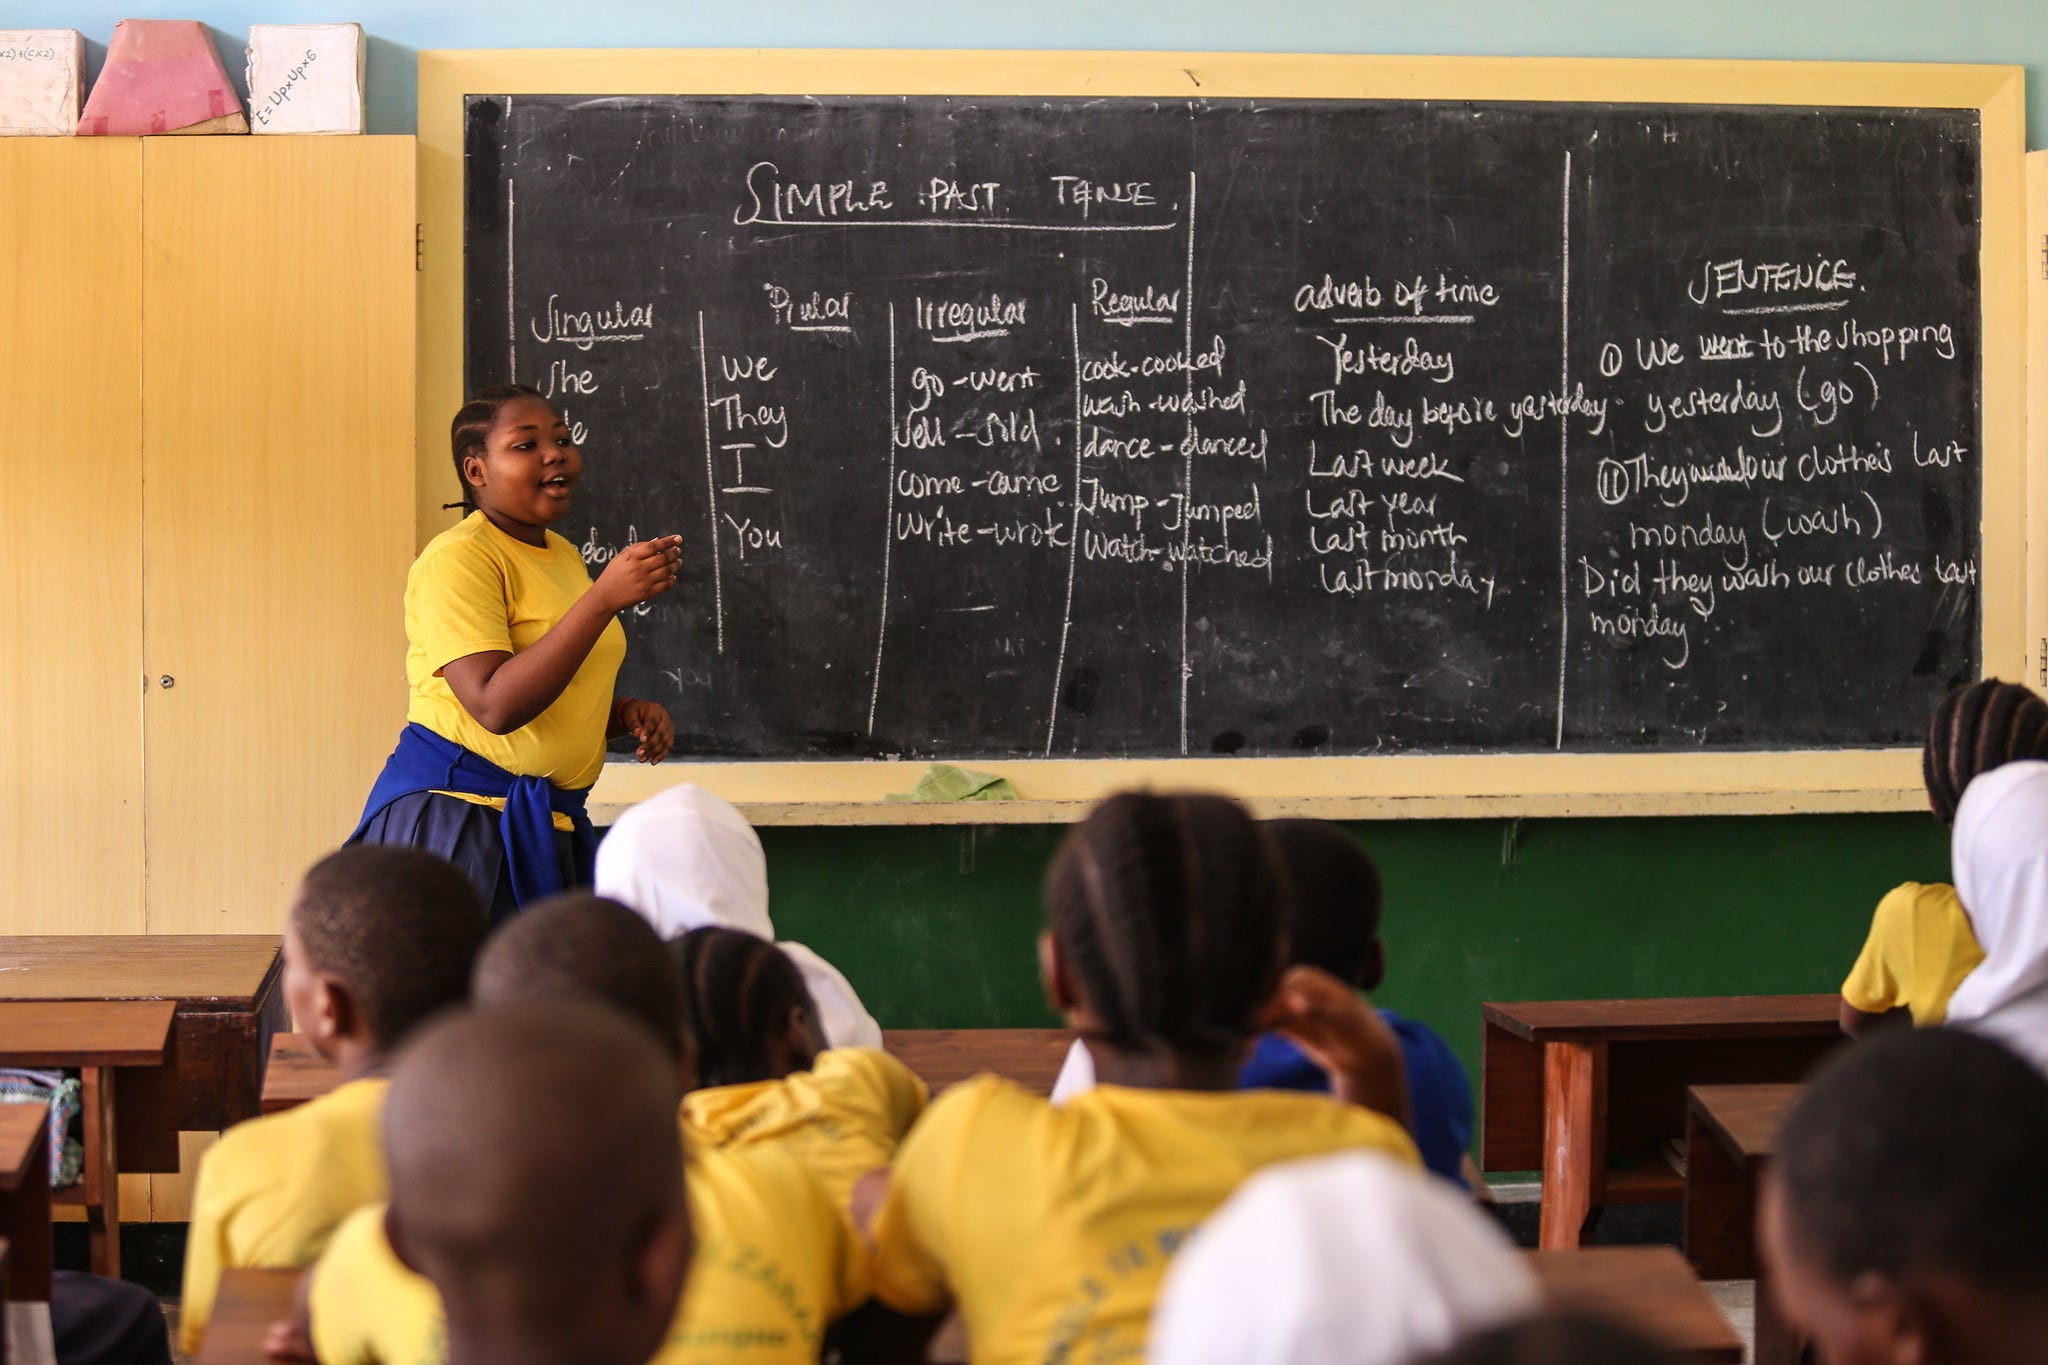 x2)+(cx2)
E= UpxUpx6
SIMPLE PAST TENSE.
Singular
She
Prular
We
They
I
You
Irregular
go - went
sell - sold.
come - came
write - wrote
Regular
cook - cooked
wash - washed
dance - danced
Jump - jumped
watch - watched
adverb of time
Yesterday
The day before yesterday
Last week
Last year
Last month
Last monday
SENTENCE.
(i) We went to the shopping
yesterday (go)
(ii) They our clothes last
monday (wash)
Did they wash our clothes last
monday